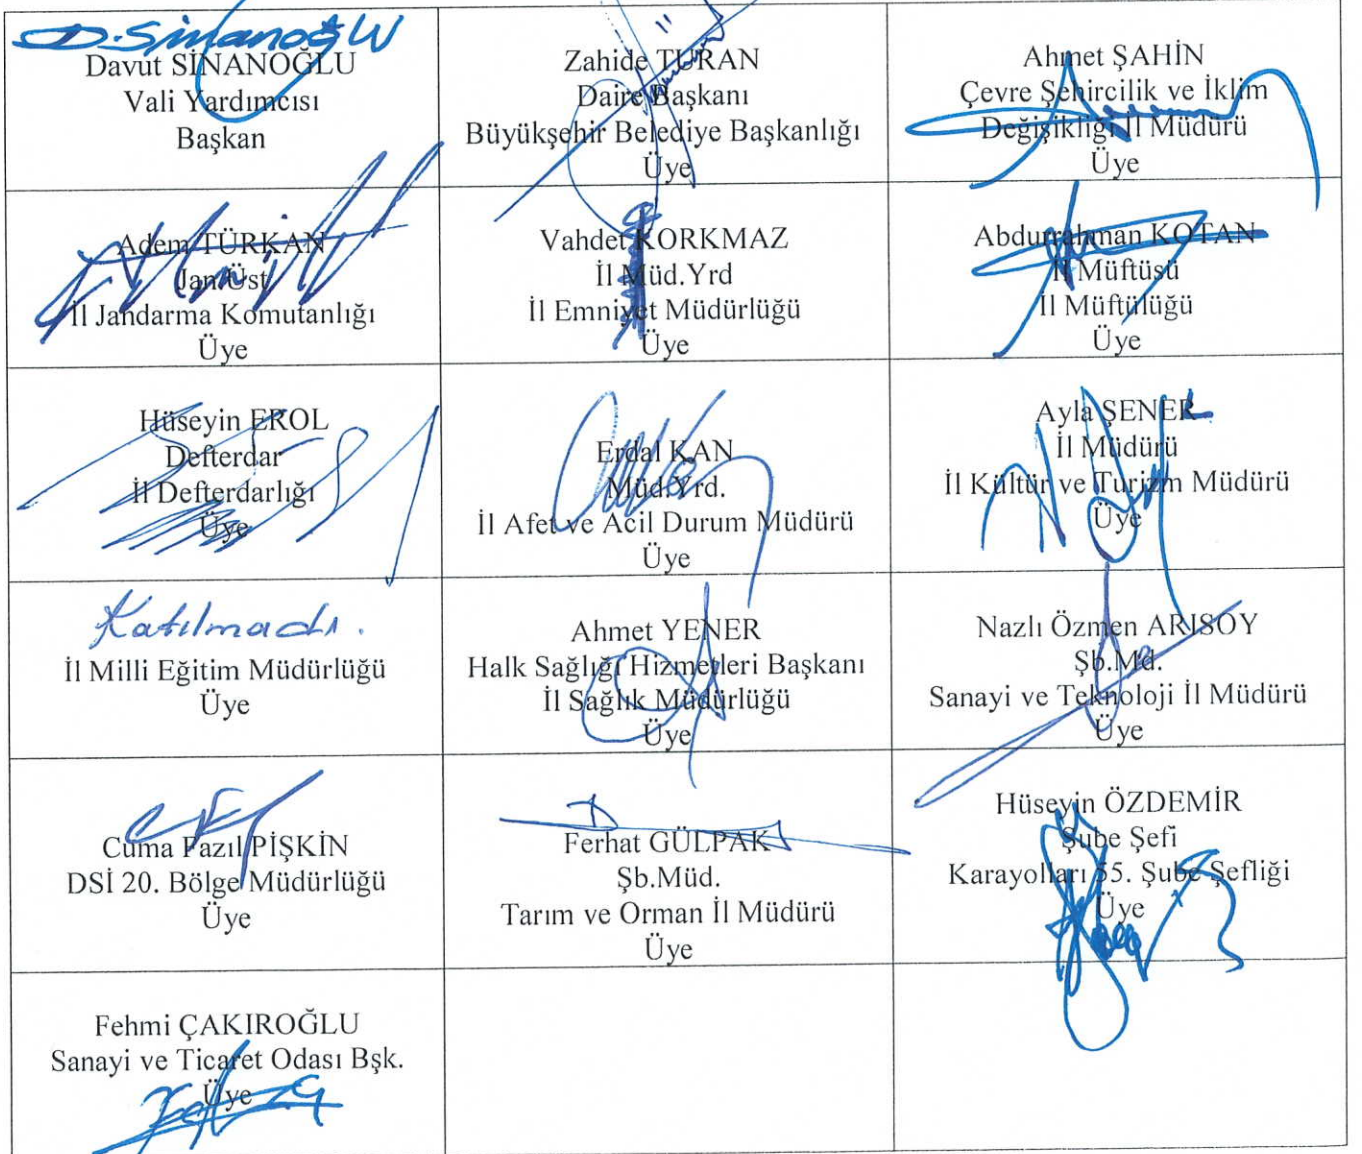 D. Sinanoğlu
Davut SİNANOĞLU
Vali Yardımcısı
Başkan
Zahide TURAN
Daire Başkanı
Büyükşehir Belediye Başkanlığı
Üye
Ahmet ŞAHİN
Çevre Şehircilik ve İklim
Değişikliği İl Müdürü
Üye
Adem TÜRKAN
Jan.Üst
İl Jandarma Komutanlığı
Üye
Vahdet KORKMAZ
İl Müd.Yrd
İl Emniyet Müdürlüğü
Üye
Abdurrahman KOTAN
İl Müftüsü
İl Müftülüğü
Üye
Hüseyin EROL
Defterdar
İl Defterdarlığı
Üye
Erdal KAN
Müd.Yrd.
İl Afet ve Acil Durum Müdürü
Üye
Ayla ŞENER
İl Müdürü
İl Kültür ve Turizm Müdürü
Üye
Katılmadı.
İl Milli Eğitim Müdürlüğü
Üye
Ahmet YENER
Halk Sağlığı Hizmetleri Başkanı
İl Sağlık Müdürlüğü
Üye
Nazlı Özmen ARISOY
Şb.Md.
Sanayi ve Teknoloji İl Müdürü
Üye
Cuma Fazıl PİŞKİN
DSİ 20. Bölge Müdürlüğü
Üye
Ferhat GÜLPAK
Şb.Müd.
Tarım ve Orman İl Müdürü
Üye
Hüseyin ÖZDEMİR
Şube Şefi
Karayolları 55. Şube Şefliği
Üye
Fehmi ÇAKIROĞLU
Sanayi ve Ticaret Odası Bşk.
Üye